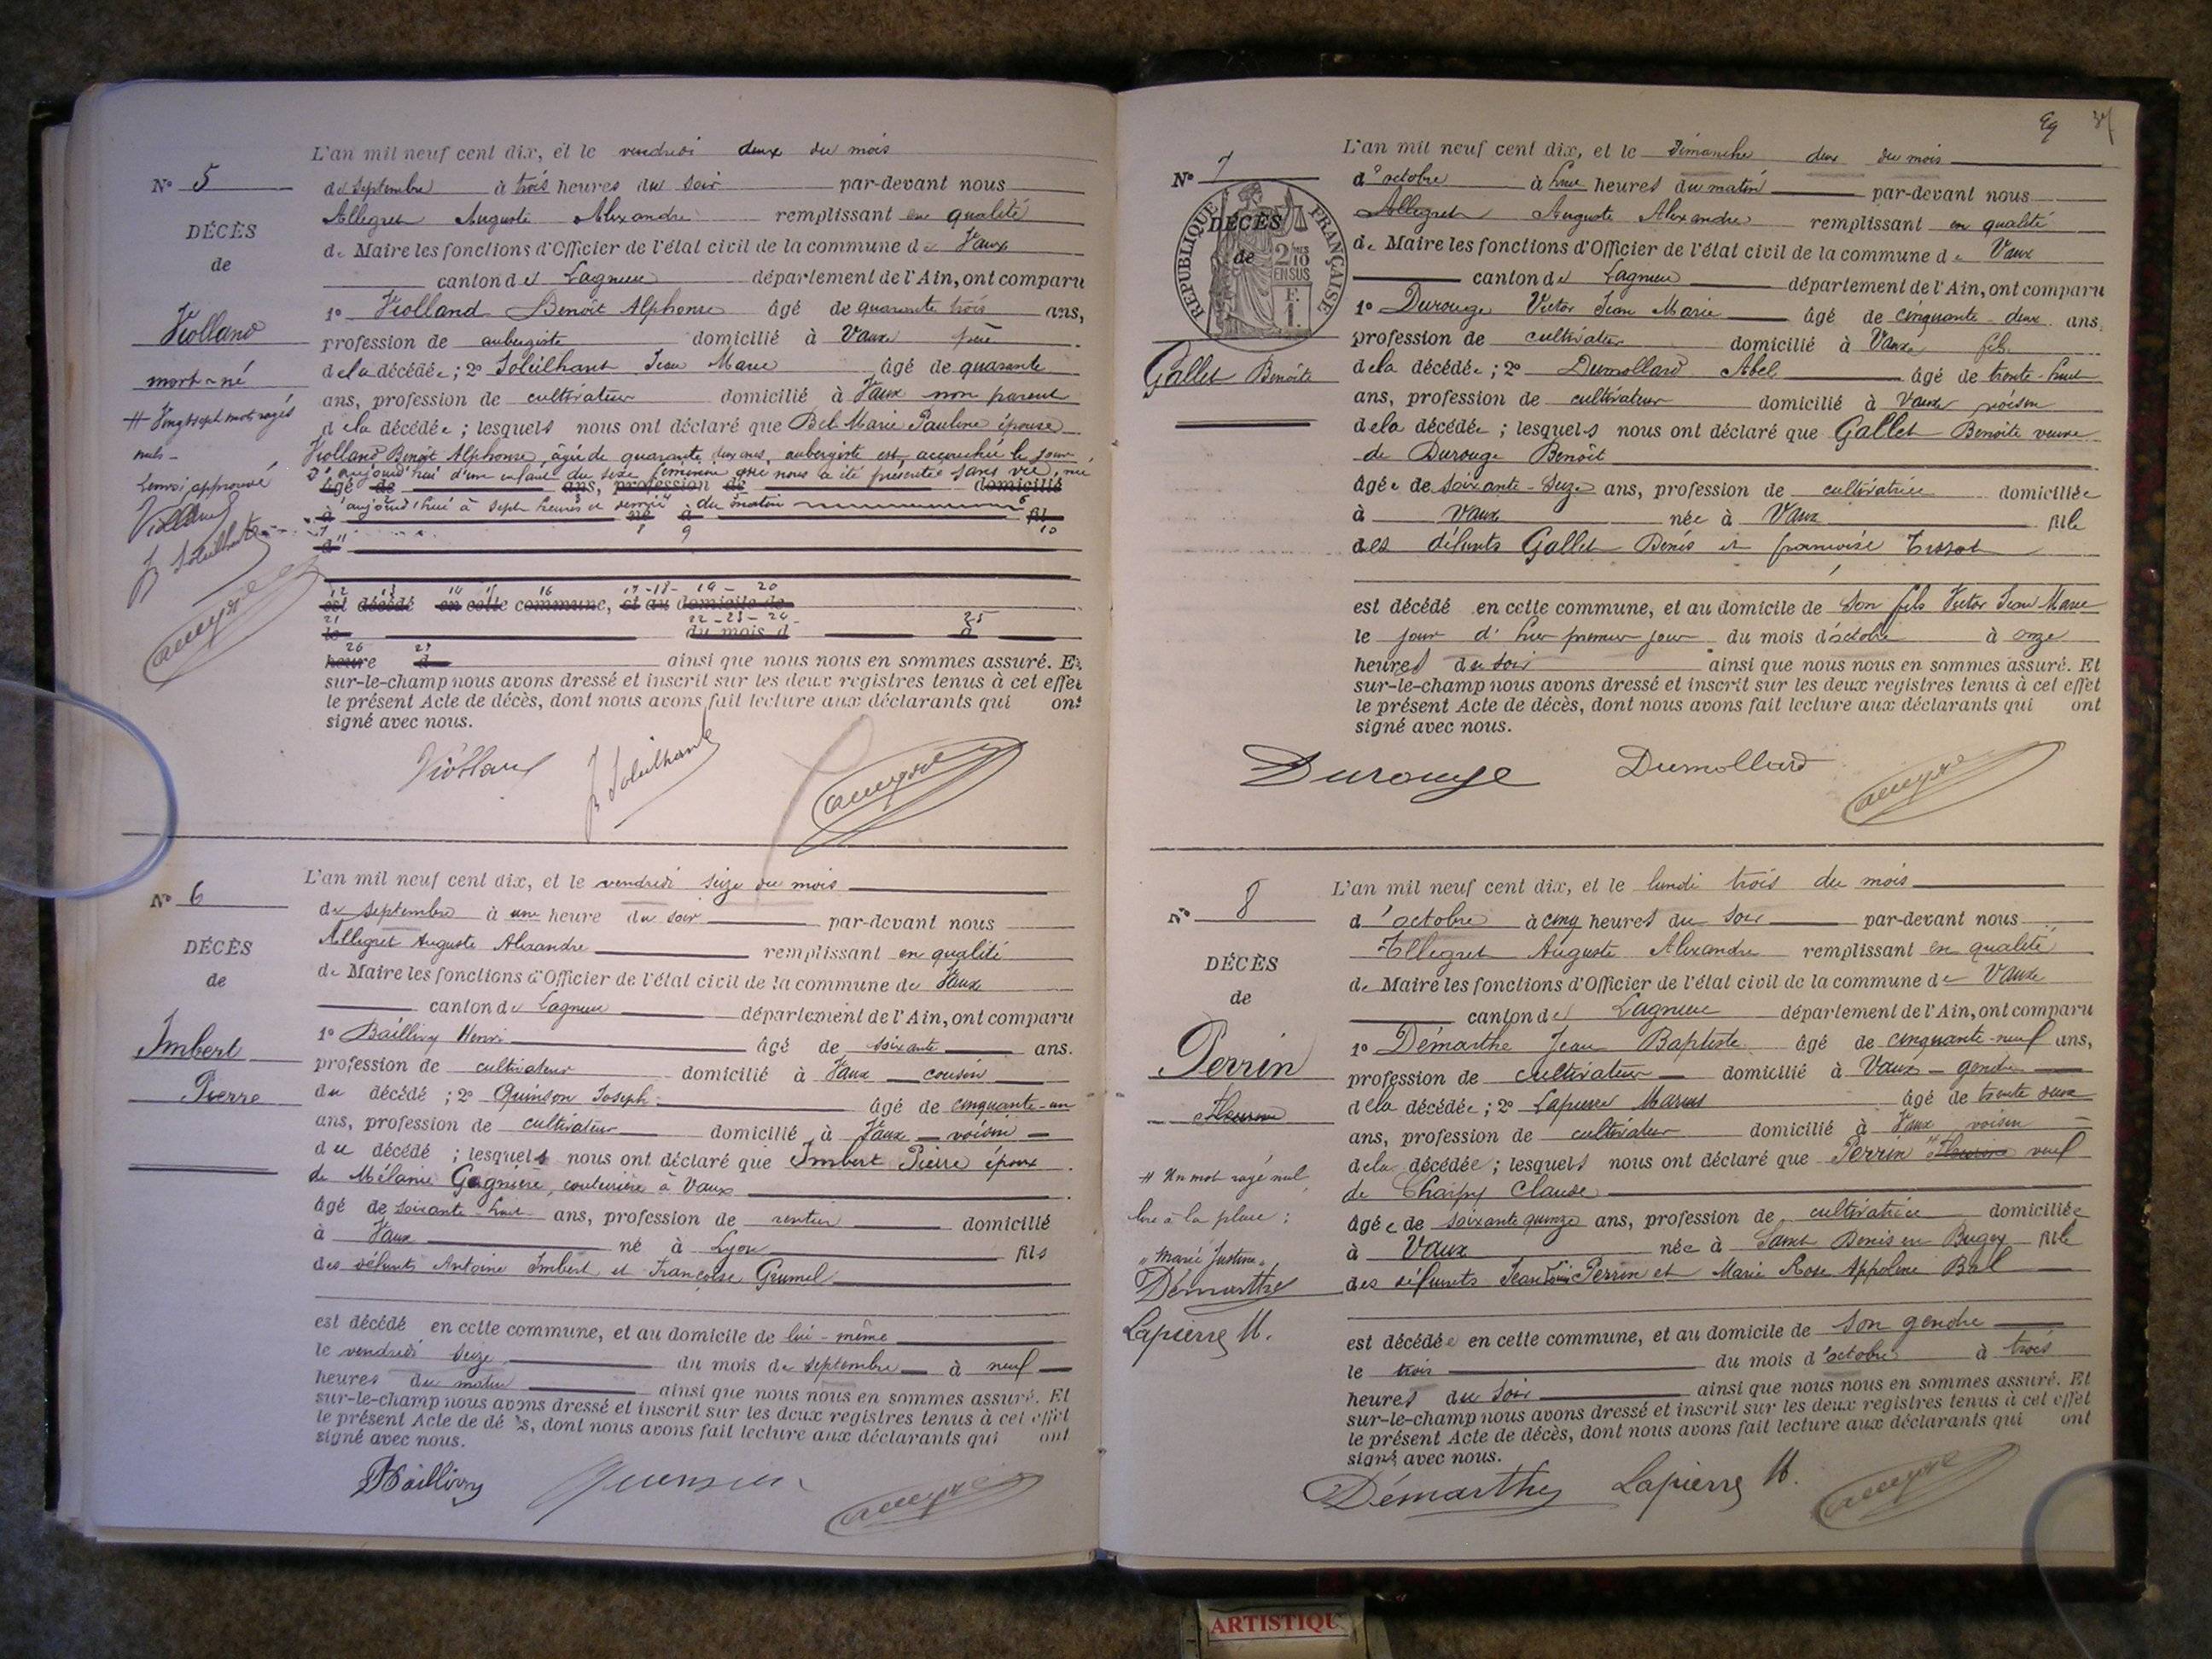 N° 5
DÉCÈS
de
Violland
mort-né
# Vingt sept mots rayés
nuls -
Renvoi approuvé
Violland
J Soleilhant
L'an mil neuf cent dix, et le vendredi deux du mois
de septembre à trois heures du soir par-devant nous
Allegret Auguste Alexandre remplissant en qualité
de Maire les fonctions d'Officier de l'état civil de la commune de Vaux
canton de Lagnieu département de l'Ain, ont comparu
1° Violland Benoît Alphonse âgé de quarante trois ans,
profession de aubergiste domicilié à Vaux père
de la décédée; 2° Soleilhant Jean Marie âgé de quarante
ans, profession de cultivateur domicilié à Vaux non parent
de la décédée; lesquels nous ont déclaré que Bel Marie Pauline épouse
Violland Benoît Alphonse, âgée de quarante deux ans, aubergiste est accouchée le jour
d'aujourd'hui d'un enfant du sexe féminin que nous a été présentée sans vie, née
âgé de ans, profession de domicilié
aujourd'hui à sept heures et demie du matin
à né à fil
d
est décédé en cette commune, et au domicile de
le du mois d à
heure d ainsi que nous nous en sommes assuré. Et
sur-le-champ nous avons dressé et inscrit sur les deux registres tenus à cet effet
le présent Acte de décès, dont nous avons fait lecture aux déclarants qui ont
signé avec nous.
Violland J Soleilhant
N° 6
DÉCÈS
de
Imbert
Pierre
L'an mil neuf cent dix, et le vendredi seize du mois
de septembre à une heure du soir par-devant nous
Allegret Auguste Alexandre remplissant en qualité
de Maire les fonctions d'Officier de l'état civil de la commune de Vaux
canton de Lagnieu département de l'Ain, ont comparu
1° Baillivy Henri âgé de soixante ans.
profession de cultivateur domicilié à Vaux cousin
du décédé; 2° Quinson Joseph âgé de cinquante-un
ans, profession de cultivateur domicilié à Vaux voisin
du décédé; lesquels nous ont déclaré que Imbert Pierre époux
de Mélanie Gagnière, couturière à Vaux
âgé de soixante-huit ans, profession de rentier domicilié
à Vaux né à Lyon fils
des défunts Antoine Imbert et Françoise Grumel
est décédé en cette commune, et au domicile de lui-même
le vendredi seize du mois de septembre à neuf
heures du matin ainsi que nous nous en sommes assuré. Et
sur-le-champ nous avons dressé et inscrit sur les deux registres tenus à cet effet
le présent Acte de décès, dont nous avons fait lecture aux déclarants qui ont
signé avec nous.
HBaillivy Quinson
N° 7
DÉCÈS
de
RÉPUBLIQUE FRANÇAISE
2/10
EN SUS
F.
1.
Gallet Benoîte
L'an mil neuf cent dix, et le dimanche deux du mois
d'octobre à huit heures du matin par-devant nous
Allegret Auguste Alexandre remplissant en qualité
de Maire les fonctions d'Officier de l'état civil de la commune de Vaux
canton de Lagnieu département de l'Ain, ont comparu
1° Durouge Victor Jean Marie âgé de cinquante-deux ans,
profession de cultivateur domicilié à Vaux fils
de la décédée; 2° Dumollard Abel âgé de trente-huit
ans, profession de cultivateur domicilié à Vaux voisin
de la décédée; lesquels nous ont déclaré que Gallet Benoîte veuve
de Durouge Benoît
âgée de soixante-seize ans, profession de cultivatrice domiciliée
à Vaux née à Vaux fille
des défunts Gallet Denis et françoise Tissot
est décédé en cette commune, et au domicile de son fils Victor Jean Marie
le jour d'hier premier jour du mois d'octobre à onze
heures du soir ainsi que nous nous en sommes assuré. Et
sur-le-champ nous avons dressé et inscrit sur les deux registres tenus à cet effet
le présent Acte de décès, dont nous avons fait lecture aux déclarants qui ont
signé avec nous.
Durouge Dumollard
N° 8
DÉCÈS
de
Perrin
# Un mot rayé nul
lire à la place:
"Marie Justine"
Démarthe
Lapierre M.
L'an mil neuf cent dix, et le lundi trois du mois
d'octobre à cinq heures du soir par-devant nous
Allegret Auguste Alexandre remplissant en qualité
de Maire les fonctions d'Officier de l'état civil de la commune de Vaux
canton de Lagnieu département de l'Ain, ont comparu
1° Démarthe Jean Baptiste âgé de cinquante-neuf ans,
profession de cultivateur domicilié à Vaux - gendre
de la décédée; 2° Lapierre Marius âgé de trente deux
ans, profession de cultivateur domicilié à Vaux voisin
de la décédée; lesquels nous ont déclaré que Perrin veuf
de Charpy Claude
âgée de soixante quinze ans, profession de cultivatrice domiciliée
à Vaux née à Saint Denis en Bugey fille
des défunts Jean Louis Perrin et Marie Rose Appoline Bal
est décédée en cette commune, et au domicile de son gendre
le trois du mois d'octobre à trois
heures du soir ainsi que nous nous en sommes assuré. Et
sur-le-champ nous avons dressé et inscrit sur les deux registres tenus à cet effet
le présent Acte de décès, dont nous avons fait lecture aux déclarants qui ont
signé avec nous.
Démarthe Lapierre M.
ARTISTIQU